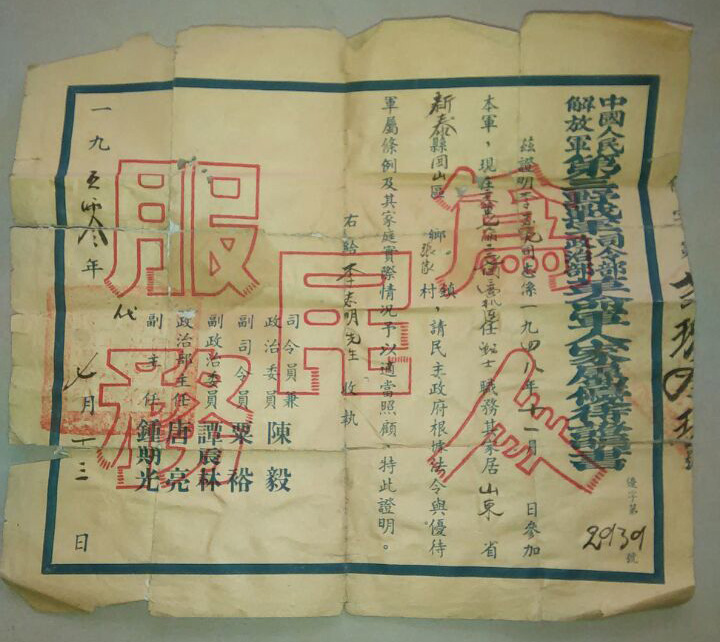 中國人民
解放軍
第三野戰軍司令部
政治部
革命軍人家屬優待證書
優字第
29139
號
茲證明李 元同志係一九四八年十一月 日參加
本軍,現在 任 士職務其家居山東省
新泰縣岡山區 鄉 張家 鎮村,請民主政府根據法令與優待
軍屬條例及其家庭實際情況予以適當照顧,特此證明。
右給李志明先生 收執
司令員兼
政治委員 陳毅
副司令員 粟裕
副政治委員 譚震林
政治部主任 唐亮
副主任 鍾期光
代
一九五零年 七月十三日
為人民服務